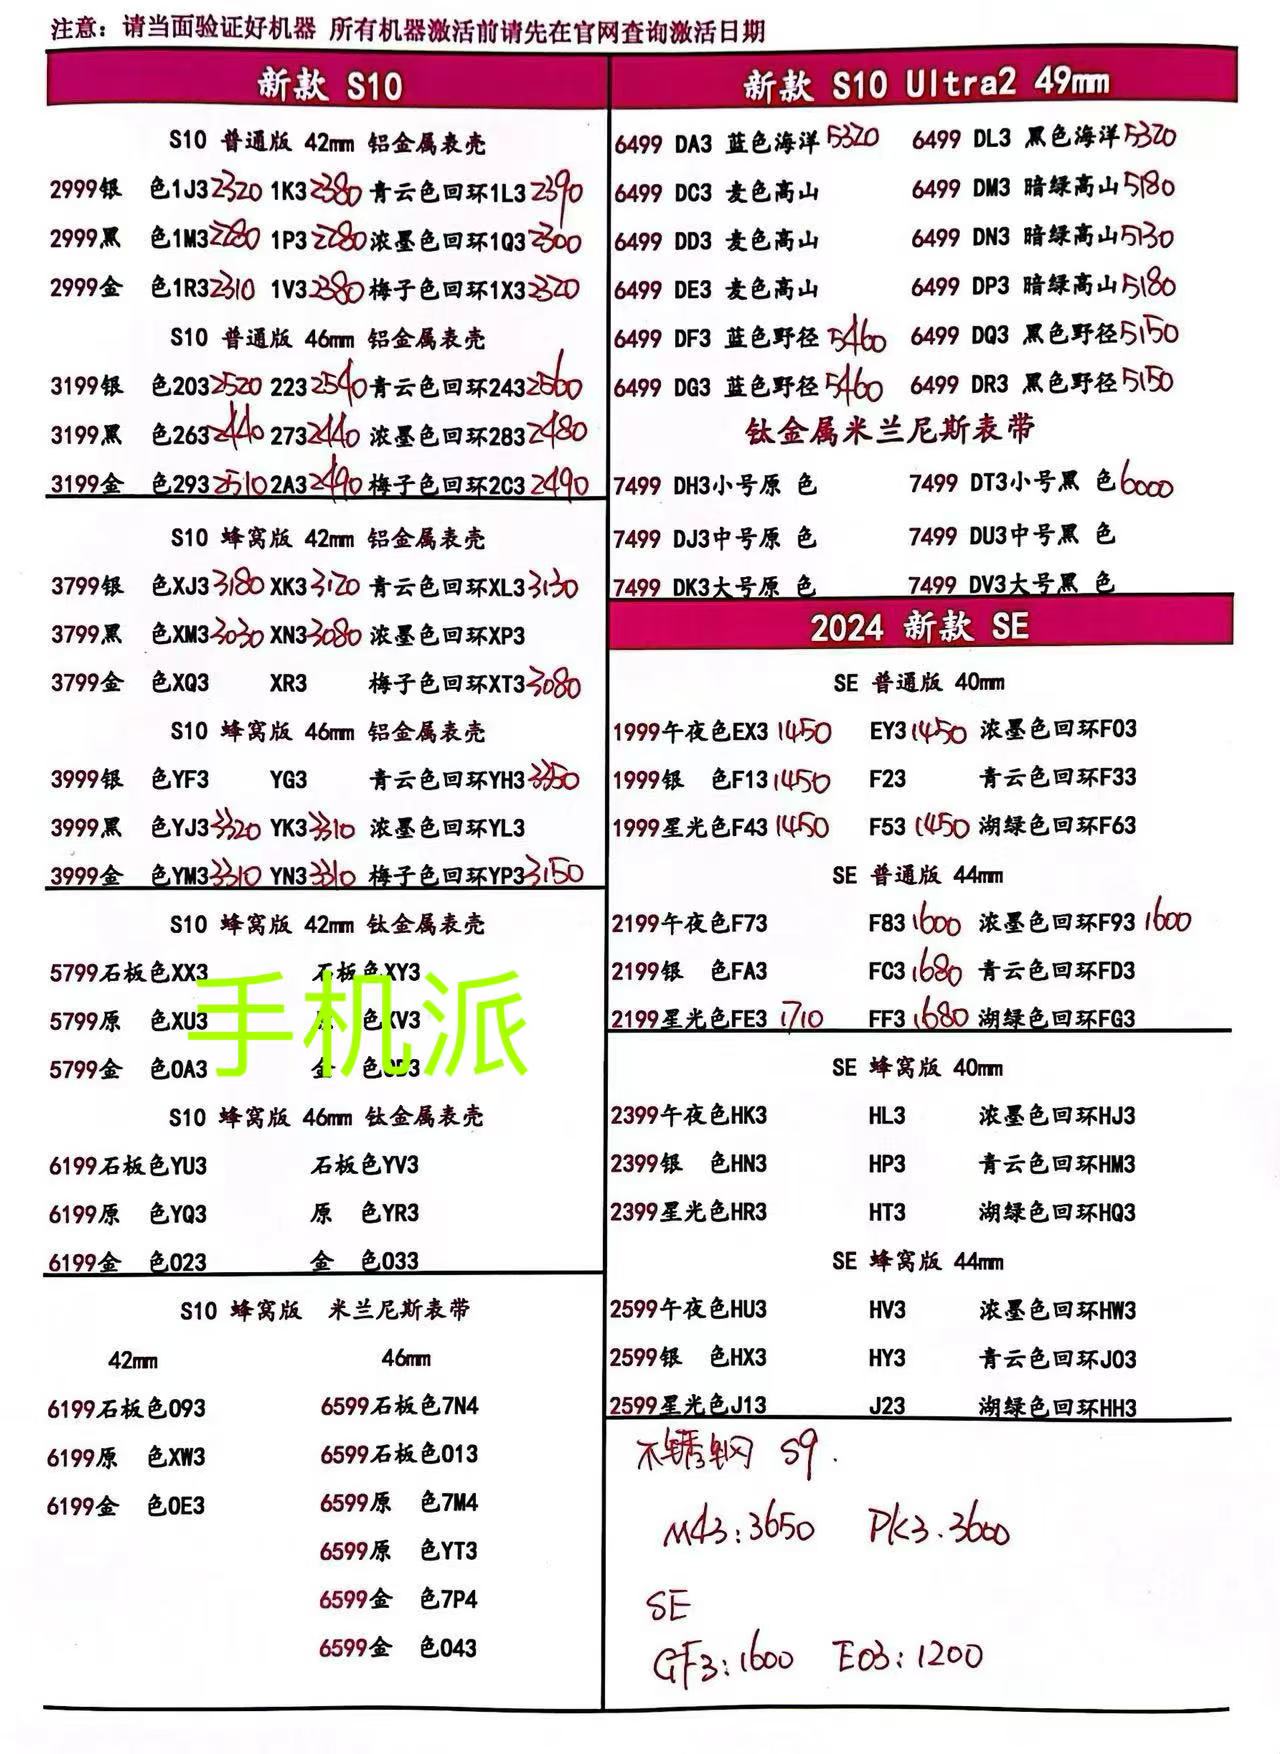 注意：请当面验证好机器 所有机器激活前请先在官网查询激活日期
新款 S10
S10 普通版 42mm 铝金属表壳
2999银 色1J3 2320 1K3 2380 青云色回环1L3 2390
2999黑 色1M3 2280 1P3 2280 浓墨色回环1Q3 2300
2999金 色1R3 2310 1V3 2380 梅子色回环1X3 2320
S10 普通版 46mm 铝金属表壳
3199银 色203 2520 223 2540 青云色回环243 2560
3199黑 色263 2440 273 2440 浓墨色回环283 2480
3199金 色293 2510 2A3 2490 梅子色回环2C3 2490
S10 蜂窝版 42mm 铝金属表壳
3799银 色XJ3 3180 XK3 3120 青云色回环XL3 3130
3799黑 色XM3 3030 XN3 3080 浓墨色回环XP3
3799金 色XQ3 XR3 梅子色回环XT3 3080
S10 蜂窝版 46mm 铝金属表壳
3999银 色YF3 YG3 青云色回环YH3 3350
3999黑 色YJ3 3320 YK3 3310 浓墨色回环YL3
3999金 色YM3 3310 YN3 3310 梅子色回环YP3 3150
S10 蜂窝版 42mm 钛金属表壳
5799石板色XX3 石板色XY3
5799原 色XU3 原 色XV3
5799金 色0A3 金 色0D3
手机派
S10 蜂窝版 46mm 钛金属表壳
6199石板色YU3 石板色YV3
6199原 色YQ3 原 色YR3
6199金 色023 金 色033
S10 蜂窝版 米兰尼斯表带
42mm 46mm
6199石板色093 6599石板色7N4
6199原 色XW3 6599石板色013
6199金 色0E3 6599原 色7M4
6599原 色YT3
6599金 色7P4
6599金 色043
新款 S10 Ultra2 49mm
6499 DA3 蓝色海洋 5320 6499 DL3 黑色海洋 5320
6499 DC3 麦色高山 6499 DM3 暗绿高山 5180
6499 DD3 麦色高山 6499 DN3 暗绿高山 5130
6499 DE3 麦色高山 6499 DP3 暗绿高山 5180
6499 DF3 蓝色野径 5460 6499 DQ3 黑色野径 5150
6499 DG3 蓝色野径 5460 6499 DR3 黑色野径 5150
钛金属米兰尼斯表带
7499 DH3小号原 色 7499 DT3小号黑 色 6000
7499 DJ3中号原 色 7499 DU3中号黑 色
7499 DK3大号原 色 7499 DV3大号黑 色
2024 新款 SE
SE 普通版 40mm
1999午夜色EX3 1450 EY3 1450 浓墨色回环F03
1999银 色F13 1450 F23 青云色回环F33
1999星光色F43 1450 F53 1450 湖绿色回环F63
SE 普通版 44mm
2199午夜色F73 F83 1600 浓墨色回环F93 1600
2199银 色FA3 FC3 1680 青云色回环FD3
2199星光色FE3 1710 FF3 1680 湖绿色回环FG3
SE 蜂窝版 40mm
2399午夜色HK3 HL3 浓墨色回环HJ3
2399银 色HN3 HP3 青云色回环HM3
2399星光色HR3 HT3 湖绿色回环HQ3
SE 蜂窝版 44mm
2599午夜色HU3 HV3 浓墨色回环HW3
2599银 色HX3 HY3 青云色回环J03
2599星光色J13 J23 湖绿色回环HH3
不锈钢 S9.
M43:3650 PK3.3600
SE
GF3:1600 E03:1200